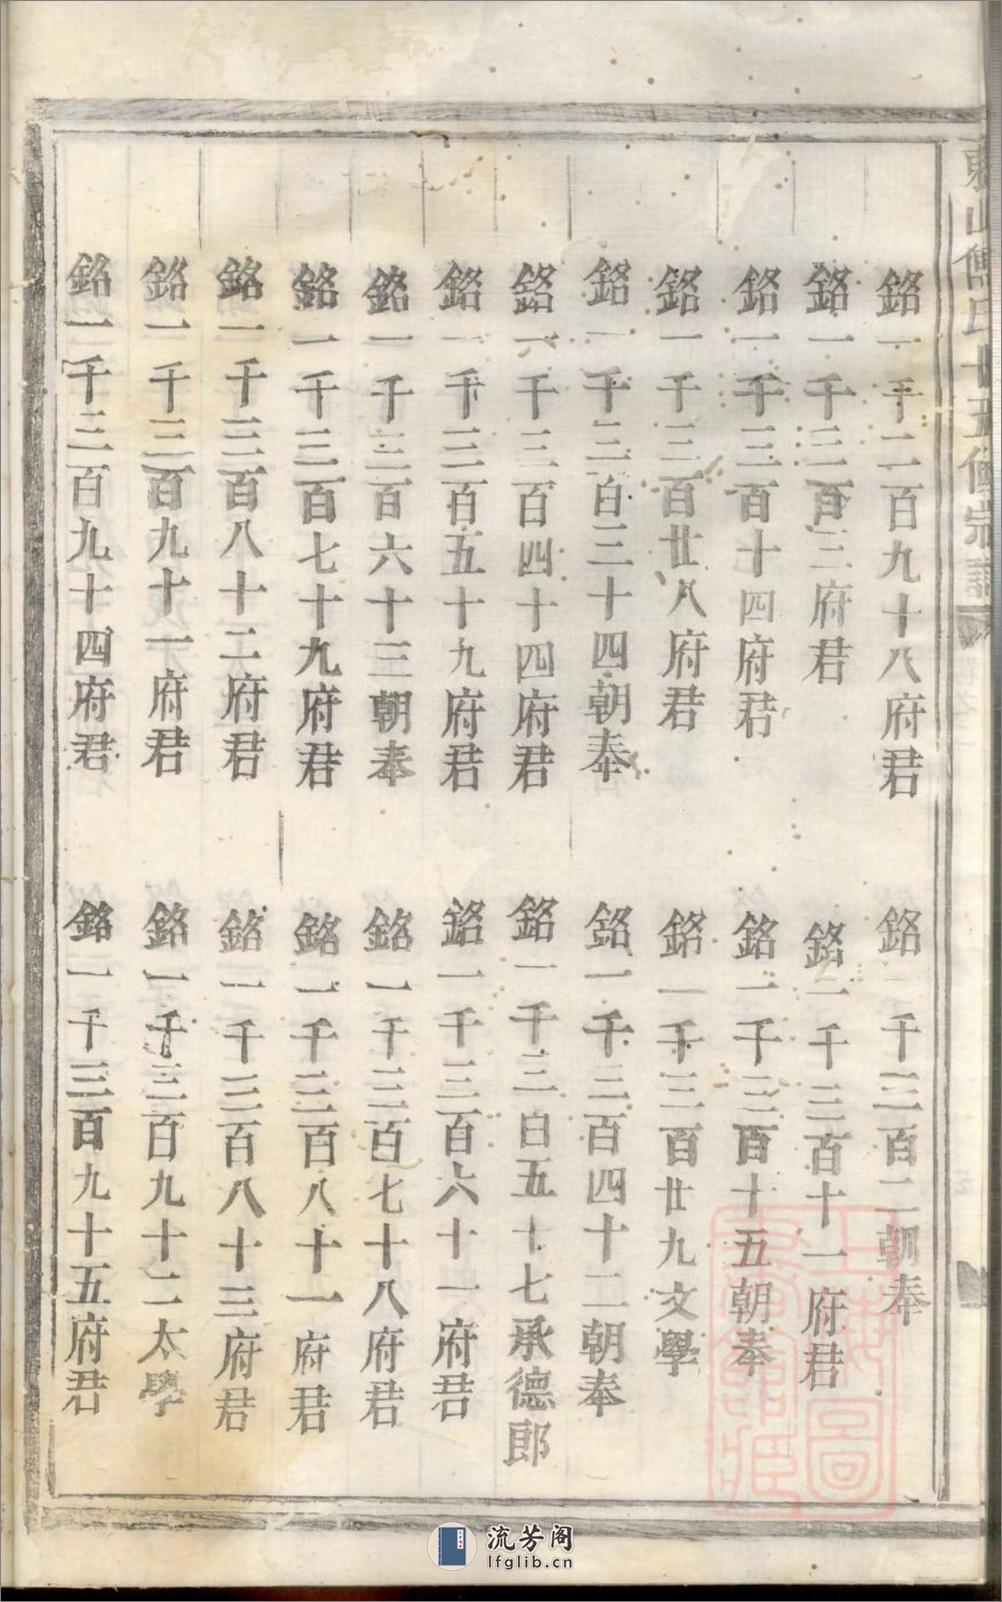 銘一千二百九十八府君
銘一千三百二朝奉
銘一千三百三府君
銘一千三百十一府君
銘一千三百十四府君
銘一千三百十五朝奉
銘一千三百廿八府君
銘一千三百廿九文學
銘一千三百三十四朝奉
銘一千三百四十二朝奉
銘一千三百四十四府君
銘一千三百五十七承德郎
銘一千三百五十九府君
銘一千三百六十一府君
銘一千三百六十三朝奉
銘一千三百七十八府君
銘一千三百七十九府君
銘一千三百八十一府君
銘一千三百八十二府君
銘一千三百八十三府君
銘一千三百九十一府君
銘一千三百九十二太學
銘一千三百九十四府君
銘一千三百九十五府君
山傅氏十五修宗譜
上海圖書館藏
流芳阁
lfglib.cn